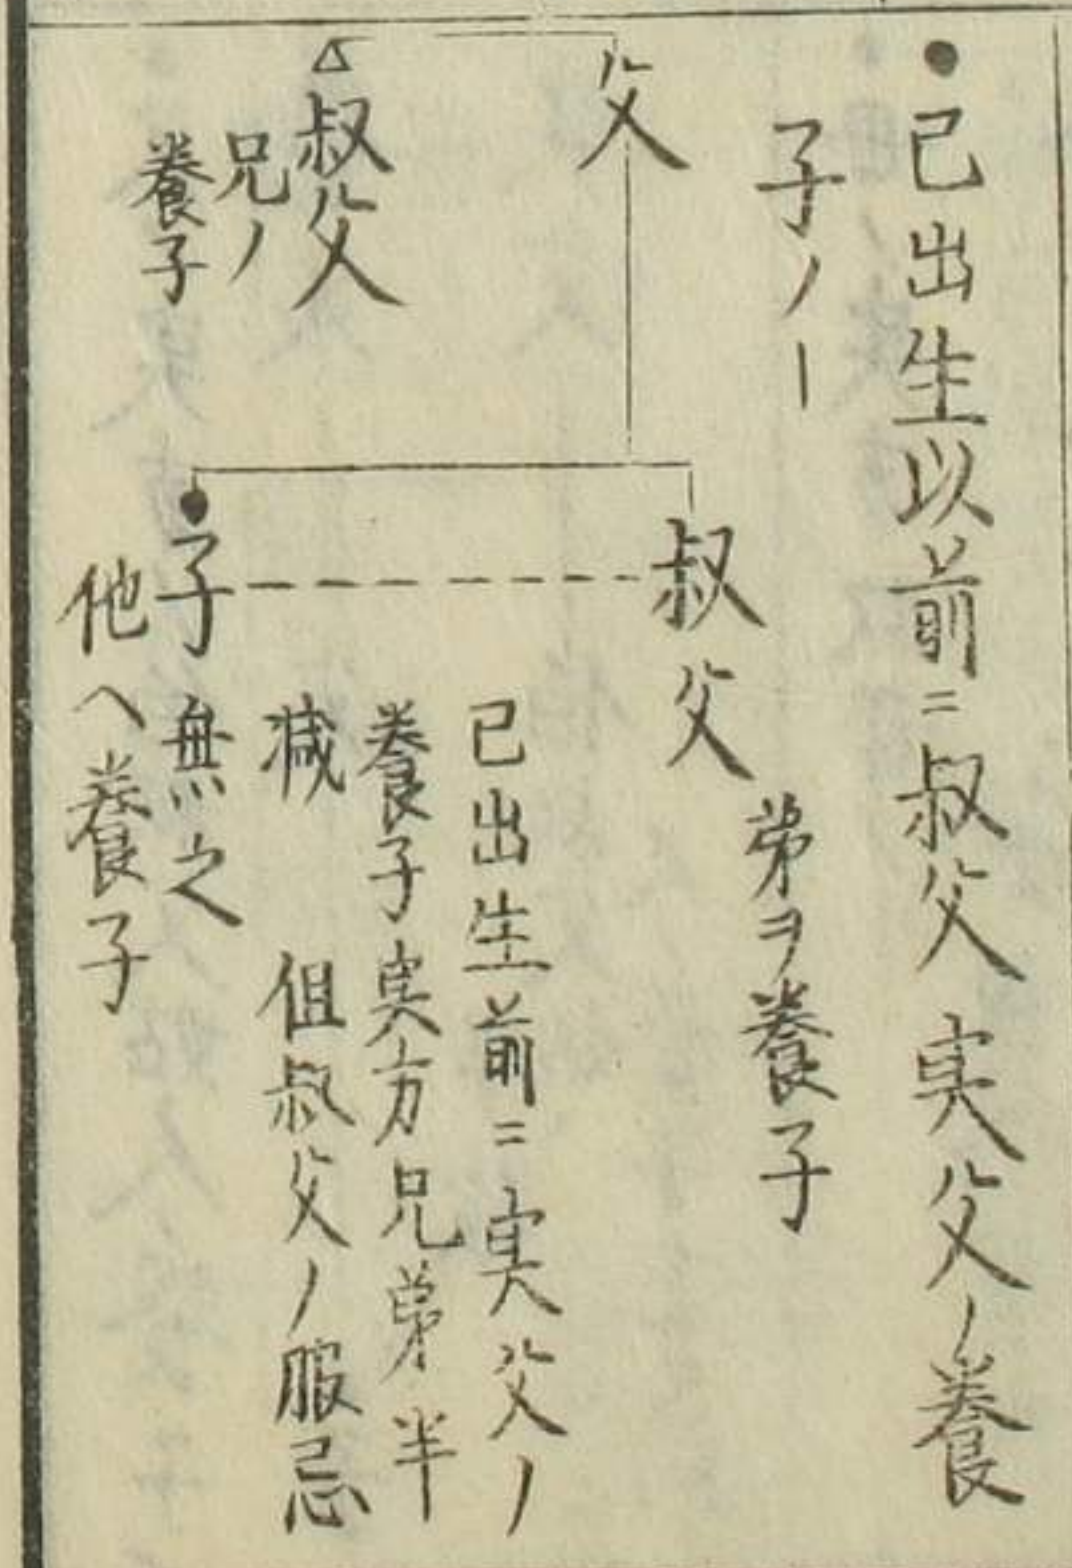 ●己出生以前ニ叔父実父ノ養
子ノー
父
叔父
兄ノ
養子
叔父
弟ヲ養子
己出生前ニ実父ノ
養子実方兄弟半
減 但叔父ノ服忌
子 無之
他ヘ養子